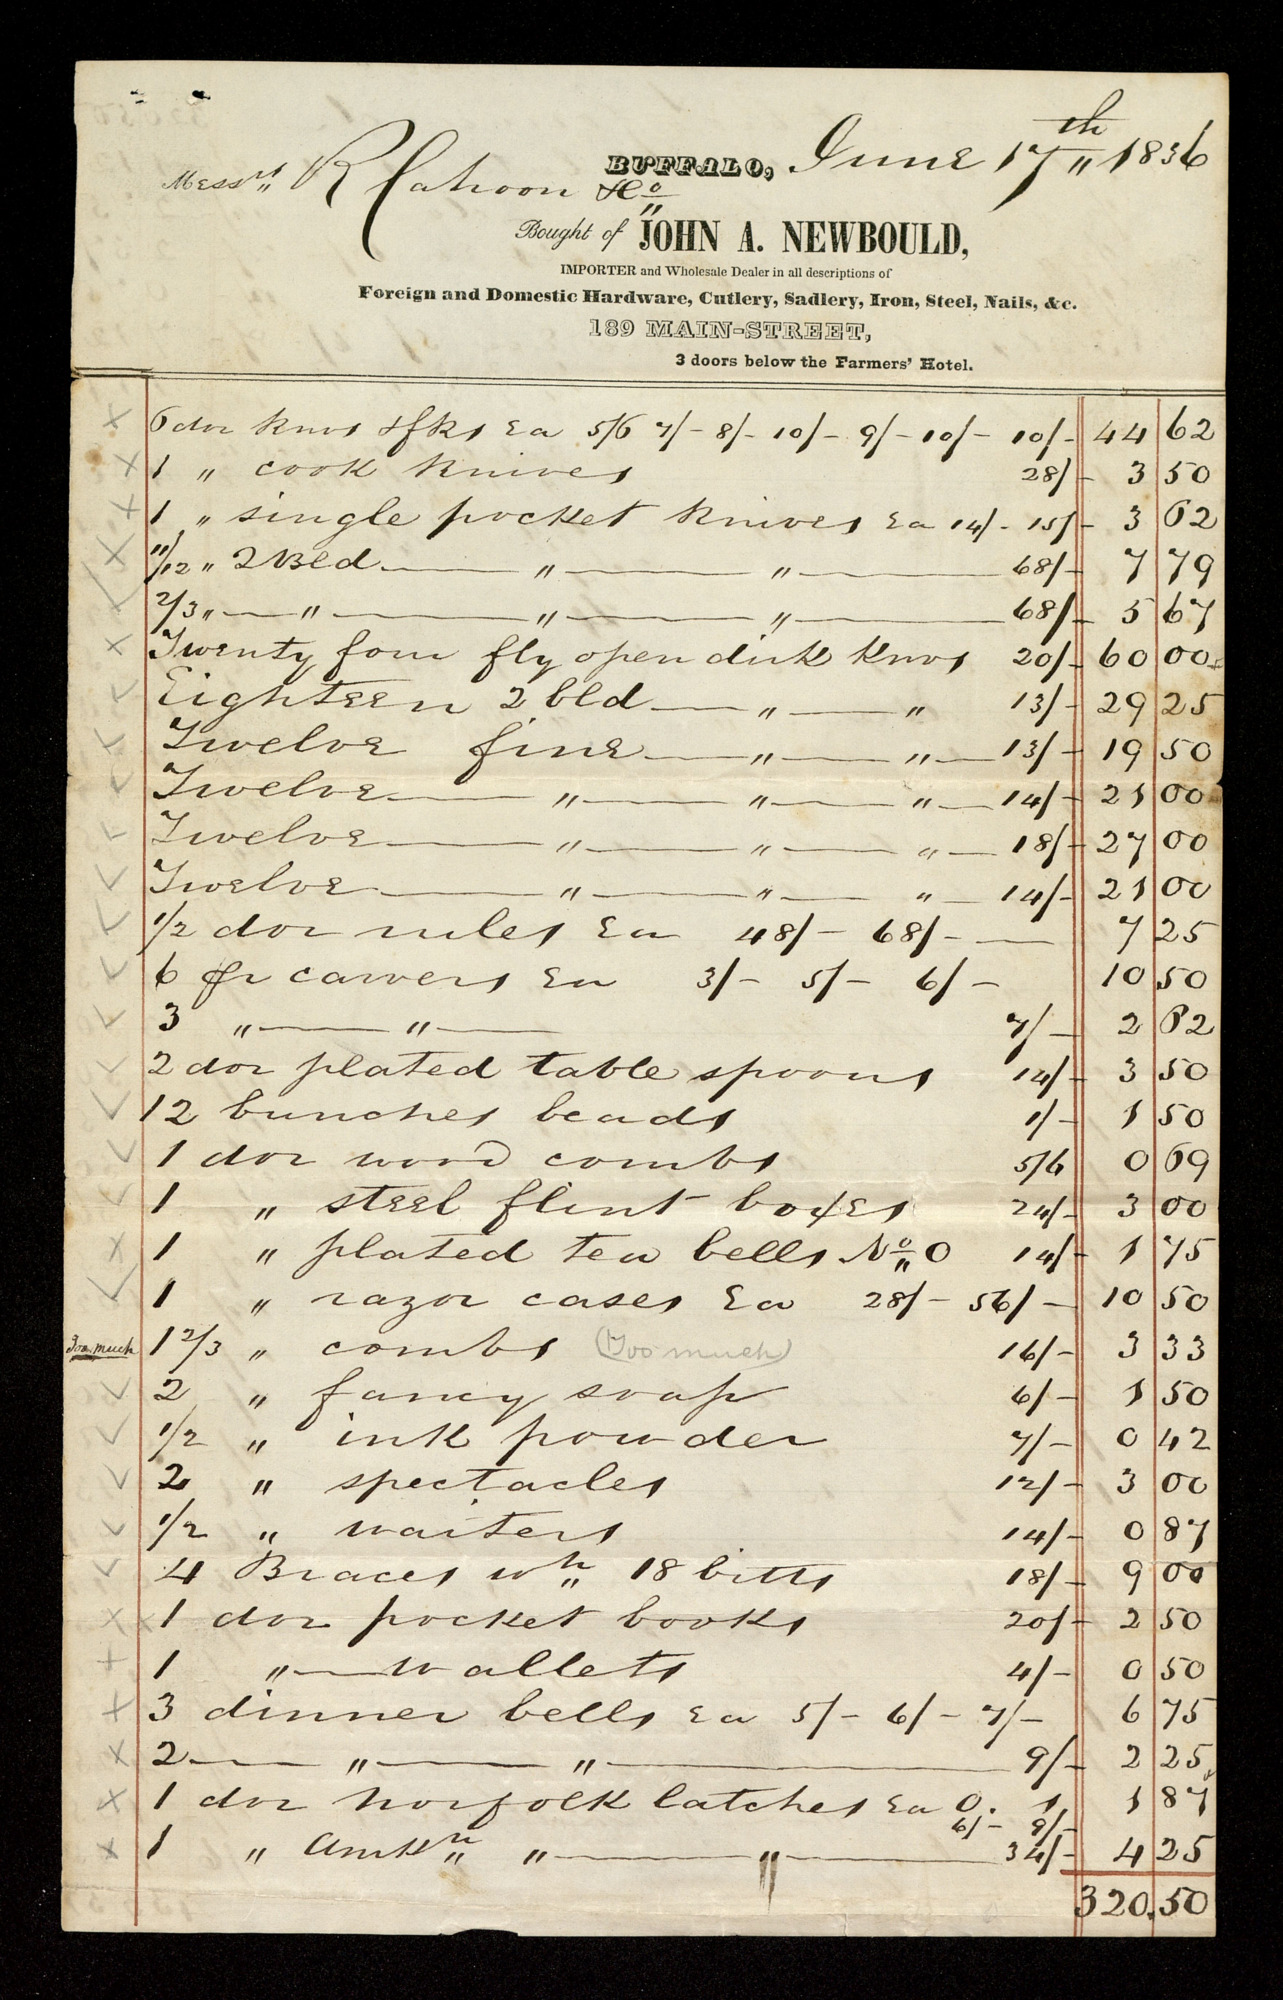 BUFFALO, June 17th 1836
Messrs R Cahoon & Co
Bought of JOHN A. NEWBOULD,
IMPORTER and Wholesale Dealer in all descriptions of
Foreign and Domestic Hardware, Cutlery, Sadlery, Iron, Steel, Nails, &c.
189 MAIN-STREET,
3 doors below the Farmers' Hotel.
6 doz knvs & fks Ea 5/6 7/- 8/- 10/- 9/- 10/- 10/- 44 62
1 " cook knives 28/- 3 50
1 " single pocket knives Ea 14/- 15/- 3 62
11/12 " 2 Bld " " 68/- 7 79
2/3 " " " " 68/- 5 67
Twenty four fly open dirk knvs 20/- 60 00
Eighteen 2 bld " " 13/- 29 25
Twelve fine " " 13/- 19 50
Twelve " " " 14/- 21 00
Twelve " " " 18/- 27 00
Twelve " " " 14/- 21 00
1/2 doz rules Ea 48/- 68/- 7 25
6 pr carvers Ea 3/- 5/- 6/- 10 50
3 " " 7/- 2 62
2 doz plated table spoons 14/- 3 50
12 bunches beads 1/- 1 50
1 doz wood combs 5/6 0 69
1 " steel flint boxes 24/- 3 00
1 " plated tea bells No 0 14/- 1 75
1 " razor cases Ea 28/- 56/- 10 50
Too much 1 2/3 " combs (Too much) 16/- 3 33
2 " fancy soap 6/- 1 50
1/2 " ink powder 7/- 0 42
2 " spectacles 12/- 3 00
1/2 " waiters 14/- 0 87
4 Braces wh 18 bitts 18/- 9 00
1 doz pocket books 20/- 2 50
1 " wallets 4/- 0 50
3 dinner bells Ea 5/- 6/- 7/- 6 75
2 " " 9/- 2 25
1 doz Norfolk latches Ea 0. 1 1 87
6/- 9/-
1 " " " 34/- 4 25
320.50